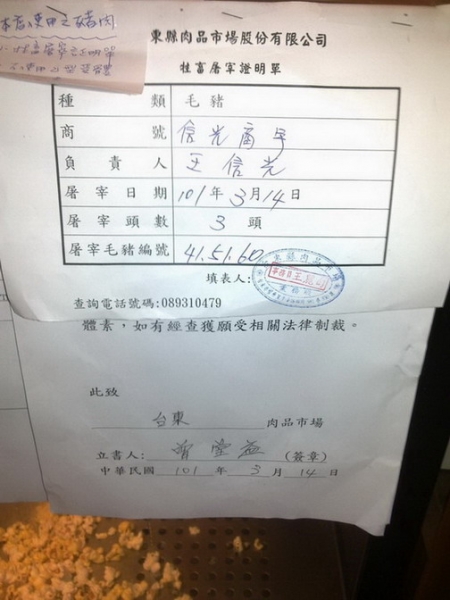 東縣肉品市場股份有限公司
牲畜屠宰證明單
種類 毛豬
商號 信光商号
負責人 王信光
屠宰日期 101年3月14日
屠宰頭數 3頭
屠宰毛豬編號 41.51.60
填表人:
查詢電話號碼:089310479
體素,如有經查獲願受相關法律制裁。
此致
台東 肉品市場
立書人: (簽章)
中華民國 101 年 3 月 14 日